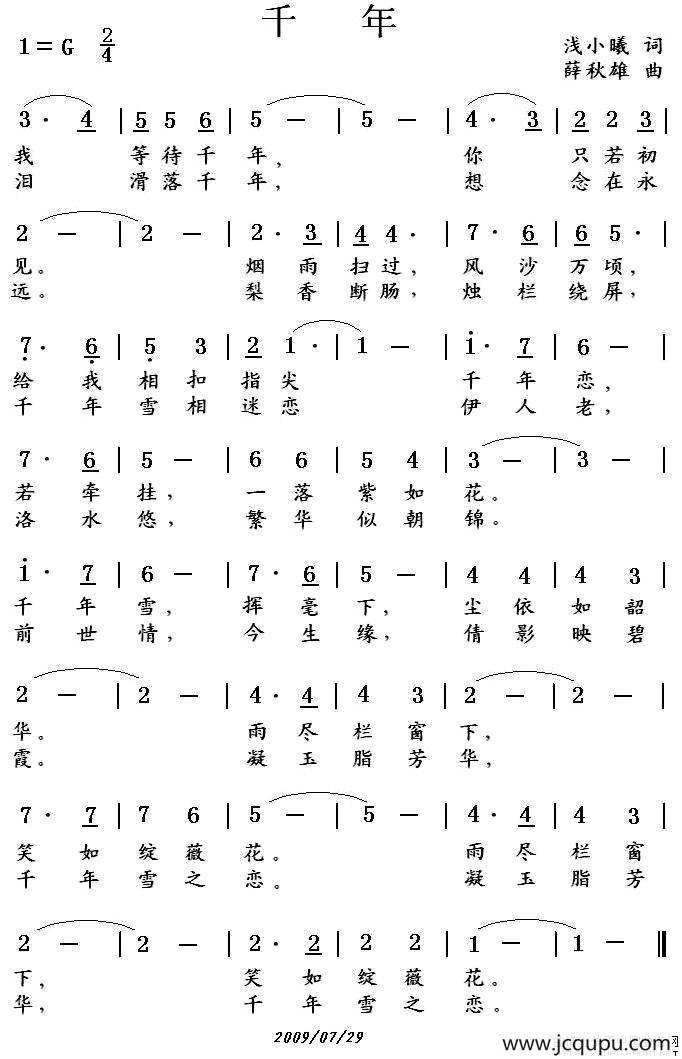 千 年
1=G 2/4
浅小曦 词
薛秋雄 曲
3· 4 | 5 5 6 | 5 — | 5 — | 4· 3 | 2 2 3 |
我 等待千 年, 你 只若初
泪 滑落千 年, 想 念在永
2 — | 2 — | 2· 3 | 4 4· | 7· 6 | 6 5· |
见。 烟 雨 扫过, 风 沙 万顷,
远。 梨 香 断肠, 烛 栏 绕屏,
7· 6 | 5 3 | 2 1· | 1 — | 1· 7 | 6 — |
给 我 相 扣 指 尖 千 年 恋,
千 年 雪 相 迷 恋 伊 人 老,
7· 6 | 5 — | 6 6 | 5 4 | 3 — | 3 — |
若 牵 挂, 一 落 紫 如 花。
洛 水 悠, 繁 华 似 朝 锦。
1· 7 | 6 — | 7· 6 | 5 — | 4 4 | 4 3 |
千 年 雪, 挥 毫 下, 尘 依 如 韶
前 世 情, 今 生 缘, 倩 影 映 碧
2 — | 2 — | 4· 4 | 4 3 | 2 — | 2 — |
华。 雨 尽 栏 窗 下,
霞。 凝 玉 脂 芳 华,
7· 7 | 7 6 | 5 — | 5 — | 4· 4 | 4 3 |
笑 如 绽 薇 花。 雨 尽 栏 窗
千 年 雪 之 恋。 凝 玉 脂 芳
2 — | 2 — | 2· 2 | 2 2 | 1 — | 1 — ‖
下, 笑 如 绽 薇 花。
华, 千 年 雪 之 恋。
2009/07/29
www.jcqupu.com